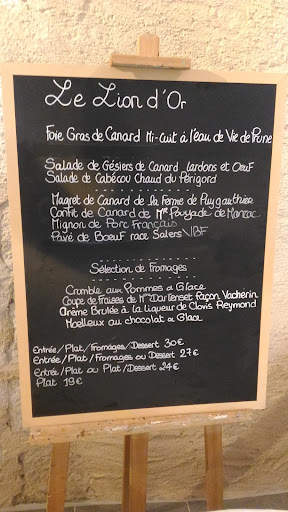 Le Lion d'Or
Foie Gras de Canard Mi-cuit à l'eau de Vie de Prune
Salade de Gésiers de Canard lardons et Oeuf
Salade de Cabécou Chaud du Périgord
Magret de Canard de la Ferme de Puygauthier
Confit de Canard de Mr Pouyade de Marzac
Mignon de Porc Français
Pavé de Boeuf race Salers VBF
Sélection de Fromages
Crumble aux Pommes & Glace
Coupe de Fraises de Mr Dartenset Façon Vacherin
Crème Brulée à la liqueur de Clovis Reymond
Moelleux au chocolat & Glace
Entrée/Plat/Fromages/Dessert 30€
Entrée/Plat/Fromages ou Dessert 27€
Entrée/Plat ou Plat/Dessert 24€
Plat 19€